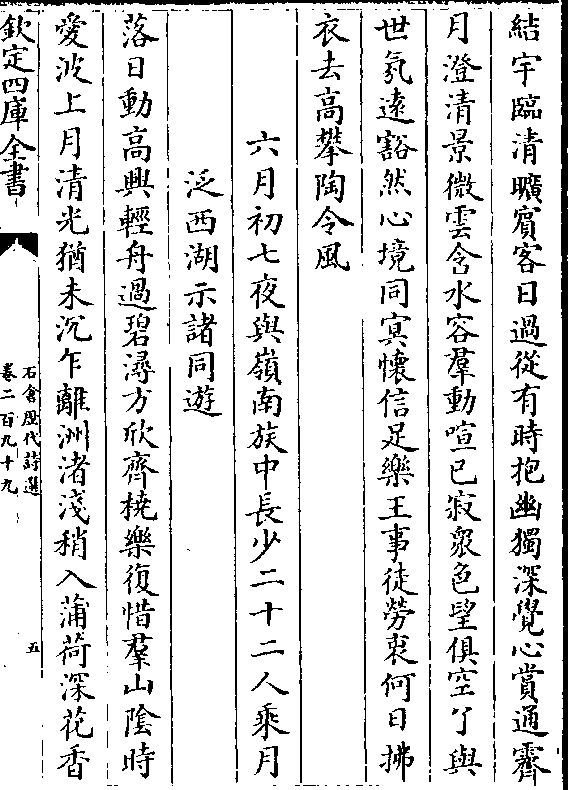 結宇臨清曠賓客日過從有時抱幽獨深覺心賞通霽
月澄清景微雲含水容羣動喧已寂衆色望俱空了與
世氛遠豁然心境同冥懷信足樂王事徒勞衷何日拂
衣去高攀陶令風
六月初七夜與嶺南族中長少二十二人乘月
泛西湖示諸同遊
落日動高興輕舟過碧潯方欣齊橈樂復惜羣山陰時
愛波上月清光猶未沉乍離洲渚淺稍入蒲荷深花香
欽定四庫全書
石倉歷代詩選
卷二百九十九
五